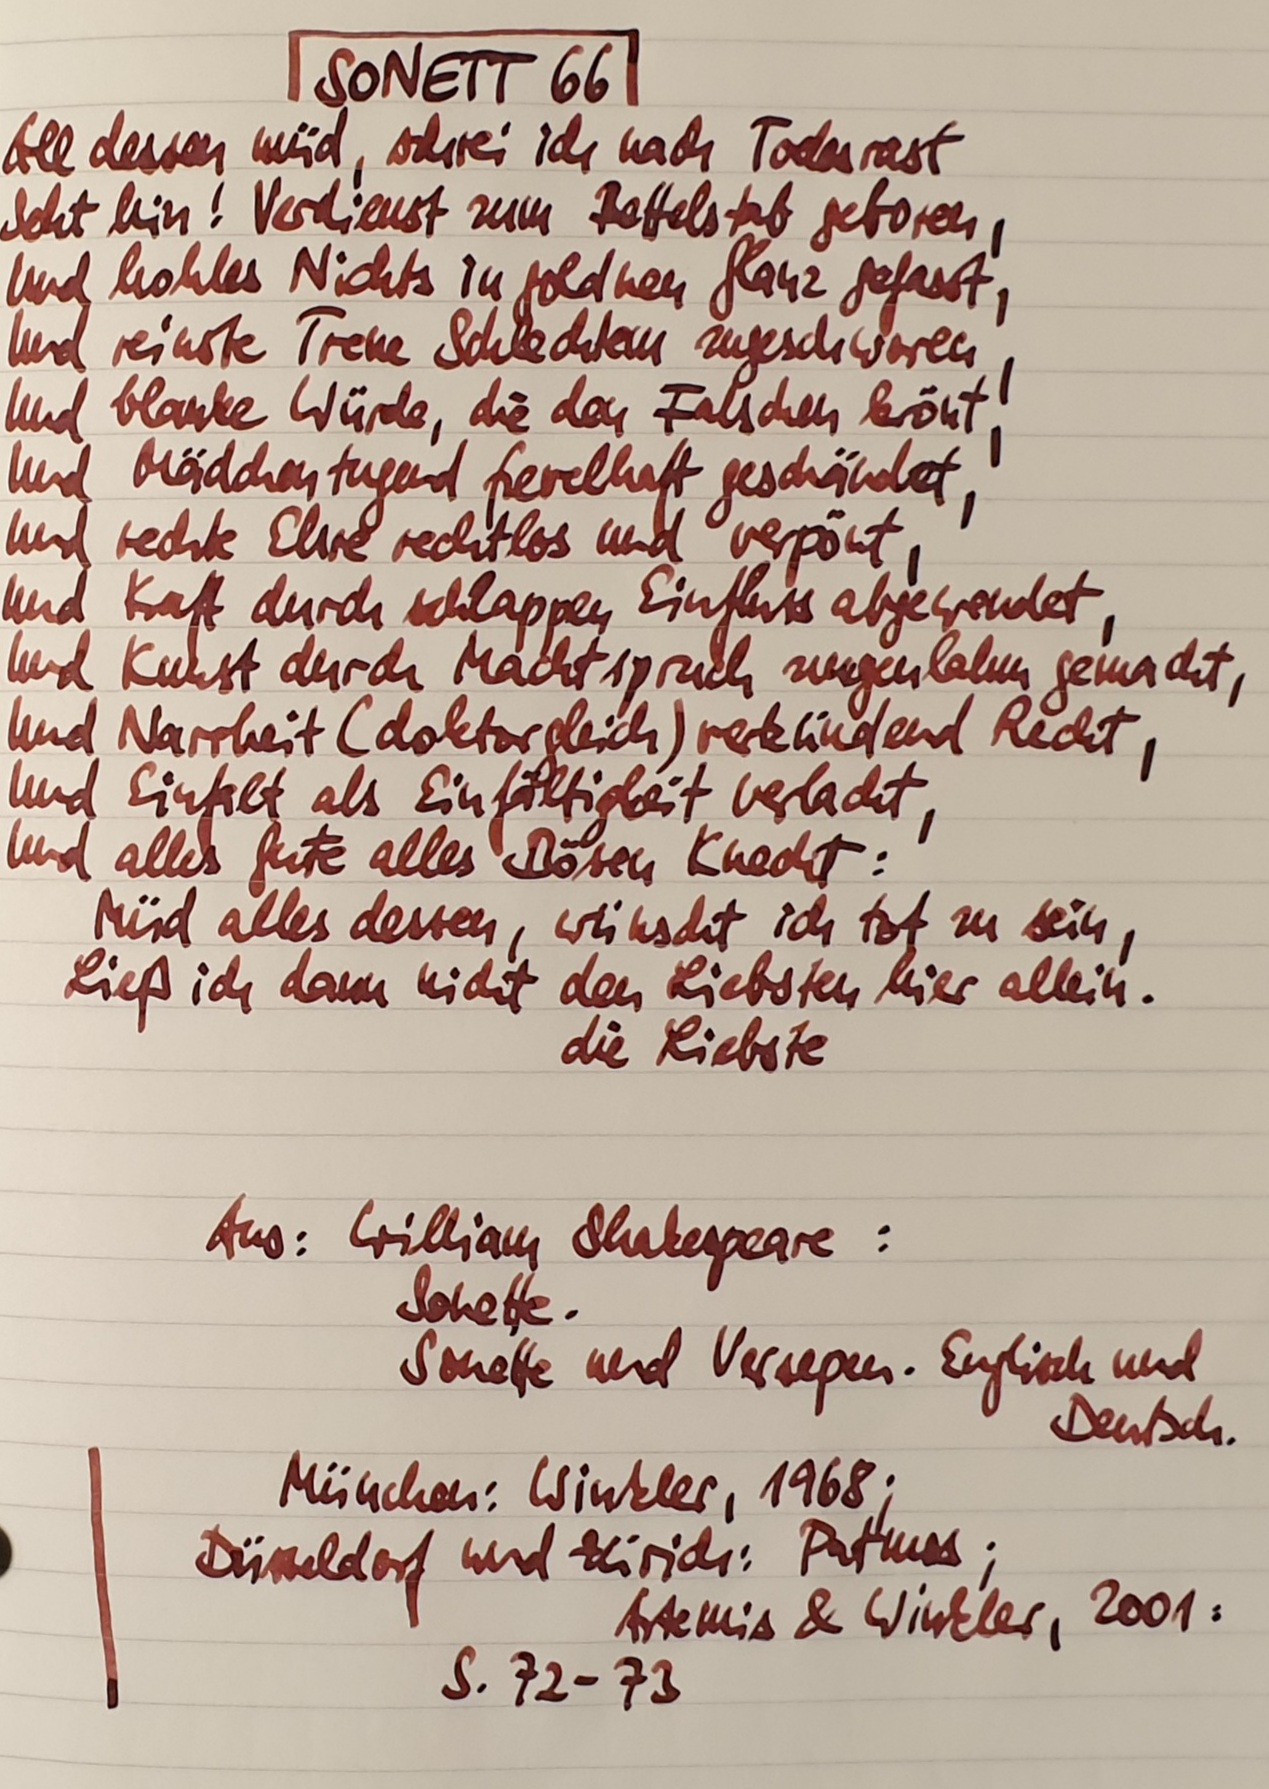 SONETT 66
All dessen müd, schrei ich nach Todesrast
Seht hin! Verdienst zum Bettelstab geboren,
Und hohles Nichts in goldnen Glanz gefasst,
Und reinste Treue Schlechtem zugeschworen,
Und blanke Würde, die den Falschen krönt,
Und Mädchentugend frevelhaft geschändet,
Und rechte Ehre rechtlos und verpönt,
Und Kraft durch schlappen Einfluss abgewendet,
Und Kunst durch Machtspruch zungenlahm gemacht,
Und Narrheit (doktorgleich) verkündend Recht,
Und Einfalt als Einfältigkeit verlacht,
Und alles Gute alles Bösen Knecht:
Müd alles dessen, wünscht ich tot zu sein,
Ließ ich dann nicht den Liebsten hier allein.
die Liebste
Aus: William Shakespeare:
Sonette.
Sonette und Versepen. Englisch und
Deutsch.
München: Winkler, 1968;
Düsseldorf und Zürich: Patmos;
Artemis & Winkler, 2001:
S. 72-73